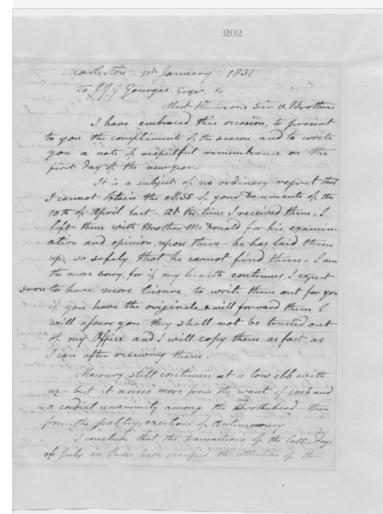 202
1st January 1831
To J J J Gourgas Esqre &c
Most Illustrious Sir & Brother
I have embraced this occasion, to present
to you the compliments of the season and to write
you a note of respectful remembrance on the
first day of the new year.
It is a subject of no ordinary regret that
I cannot obtain the MSS of your Documents of the
10th of April last. At the time I received them, I
left them with Brother McDonald for his examin-
ation and opinion upon them - he has laid them
up so safely that he cannot find them. I am
the more sorry, for if my health continues I expect
soon to have more leisure to write them out for you
if you have the originals & will forward them I
will assure you they shall not be trusted out
of my Office and I will copy them as fast as
I can after receiving them.
Masonry still continues at a low ebb with
us - but it arises more from the want of cash and
a cordial unanimity among the Brotherhood than
from the paltry exertions of Antimasonry
I conclude that the transactions of the latter days
of July in Paris have occupied the attention of the